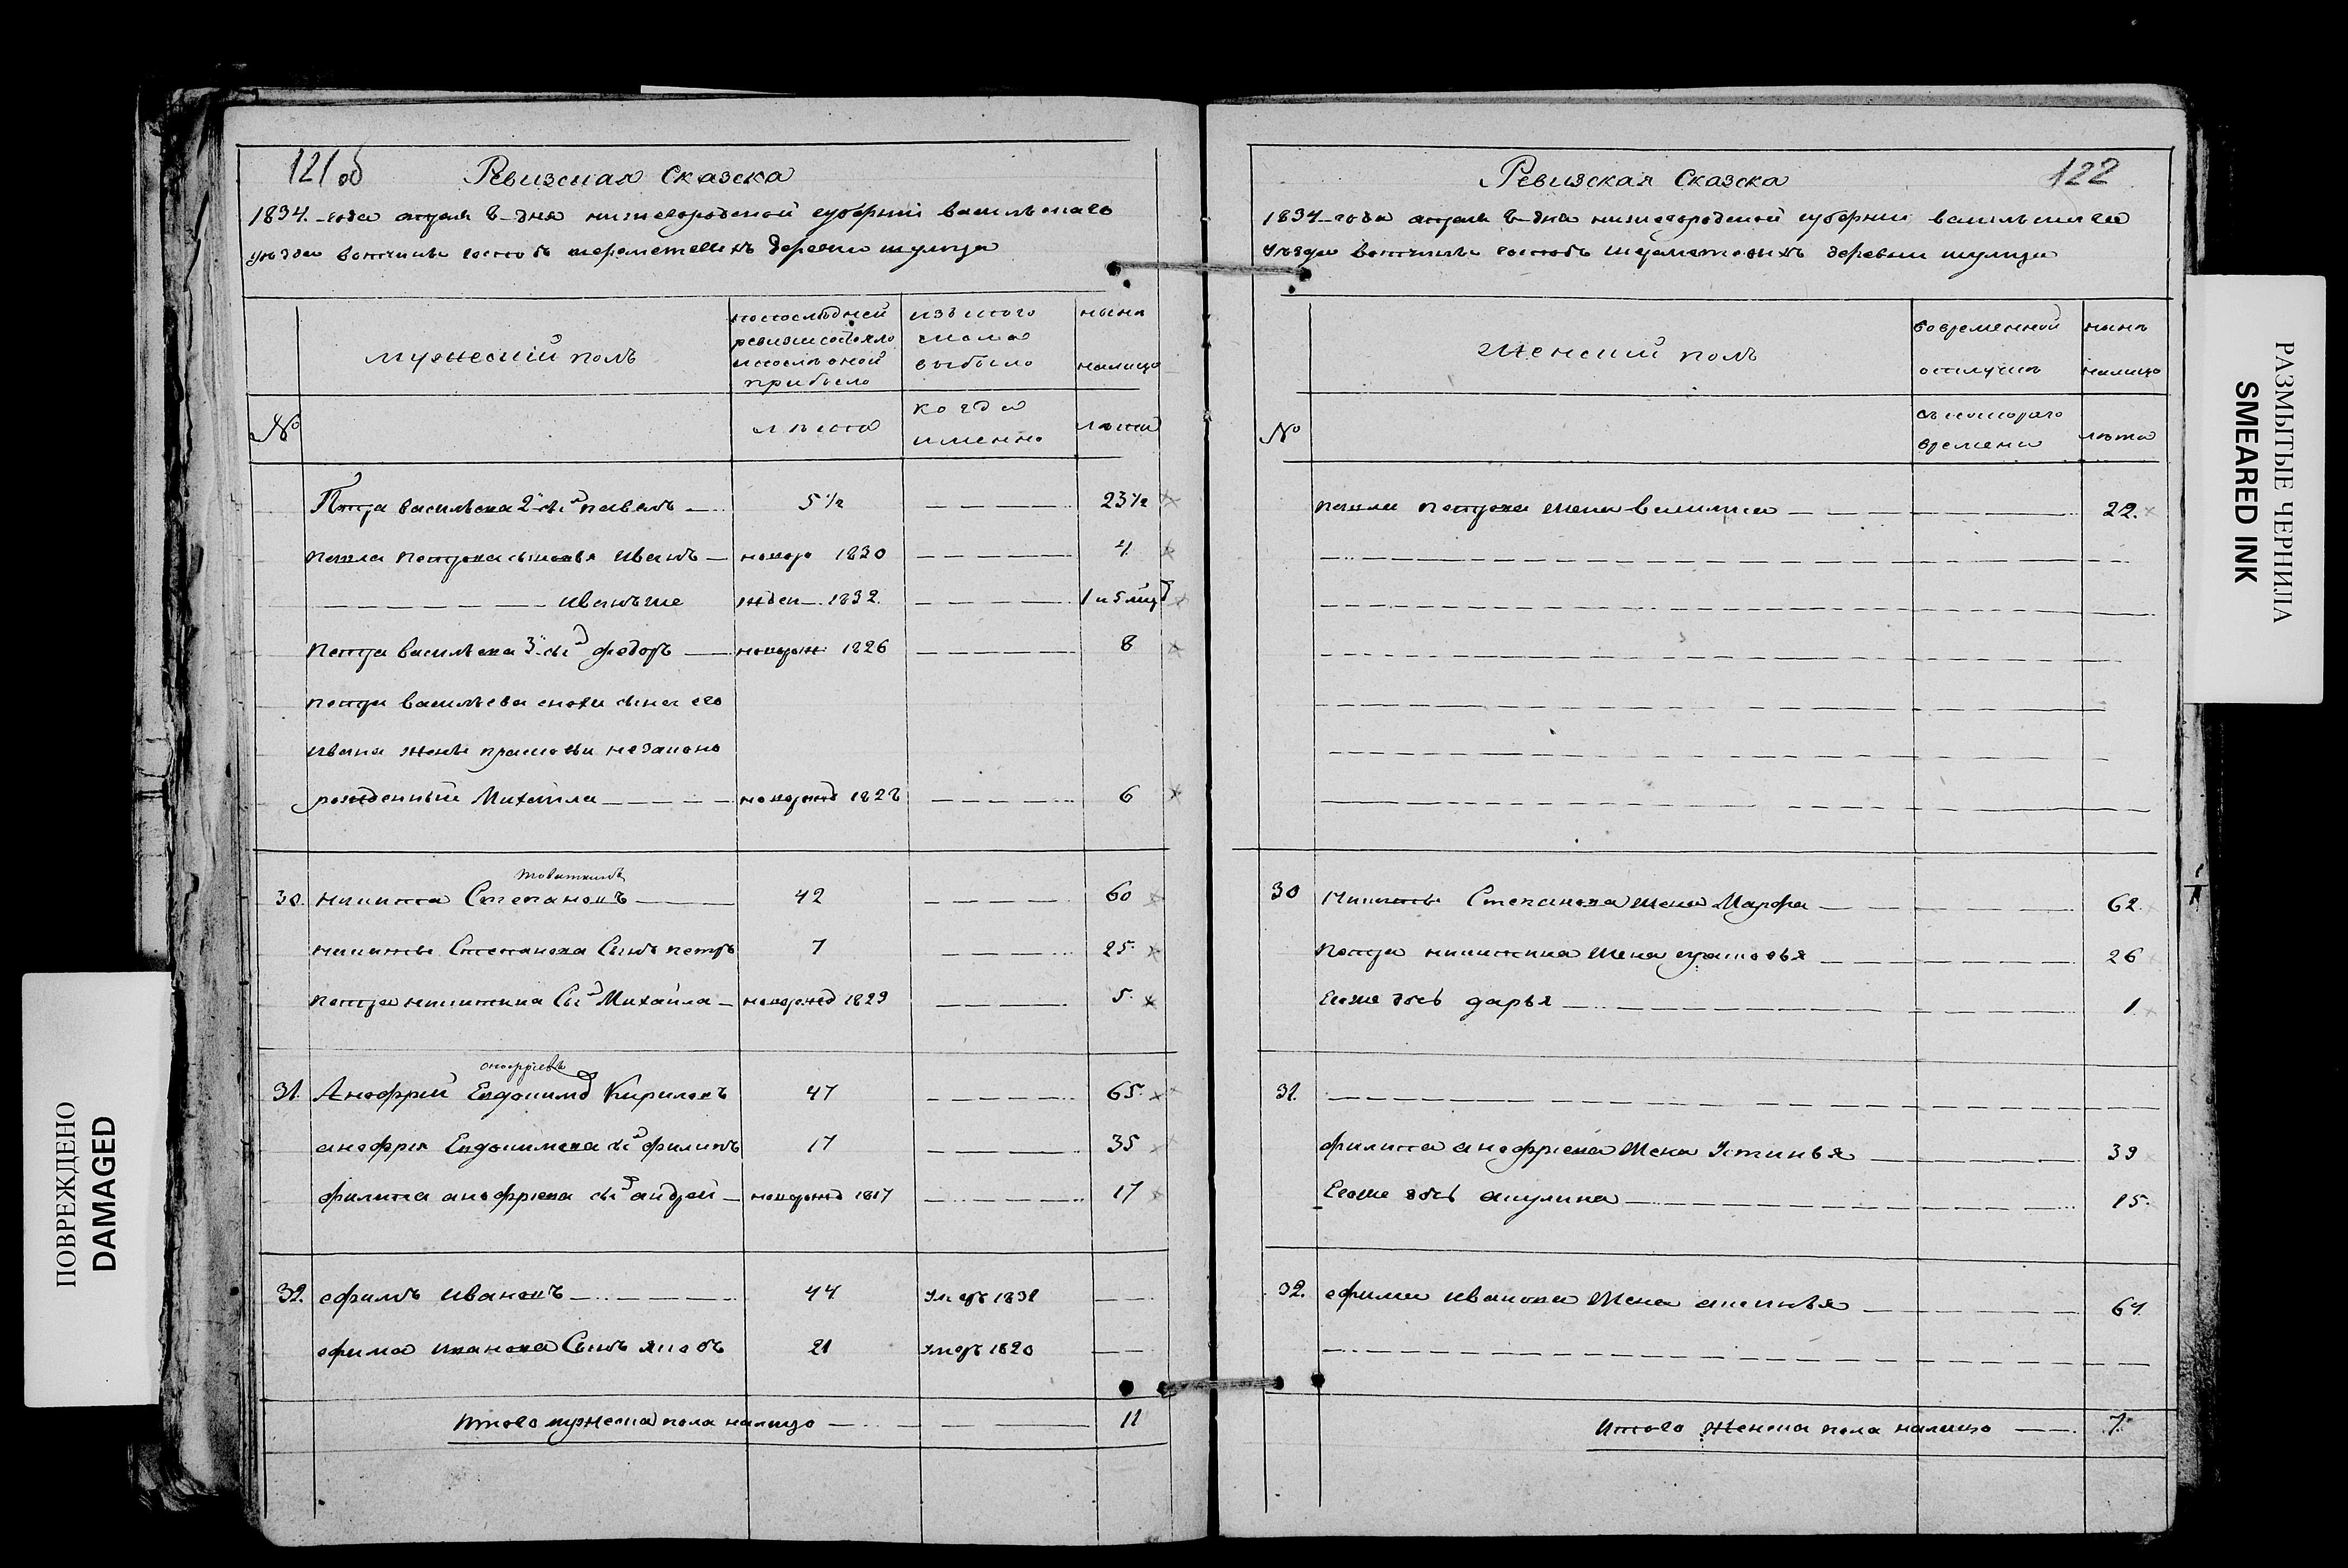 121 об
Ревизская Сказска
1834.-года апреля 8-дня нижегородской губернии васильскаго
уезда вотчины господъ шереметевыхъ деревни шулица
мужеский полъ
попоследней
ревизии состояло
ипосле оной
прибыло
изътого
числа
выбыло
ныне
налицо
№
лета
когда
именно
лета
Петра васильева 2й сынъ павелъ 5 ½ 23 ½
павла петрова сыновья иванъ новоро 1830 4
иванъ же жден 1832. 1 и 5 мцд
петра васильева 3й сынъ федоръ новорож 1826 8
петра васильева снохи сына его
ивана жены прасковьи незаконо
рожденный Михайла новорожд 1828 6
30. никита Степановъ 42 60
никиты Степанова Сынъ петръ 7 25.
петра никитина Сынъ Михайла новорожд 1829 5.
анофріевъ
31. Анофрий Евдокимов Кириловъ 47 65.
анофрия Евдокимова сынъ филипъ 17 35
филипа анофриева сынъ андрей новорожд 1817 17
32. ефимъ ивановъ 44 умеръ 1831
ефима иванова Сынъ яковъ 21 умеръ 1820
Итого мужеска пола налицо 11
Ревизская Сказска
122
1834-года апреля 8-дня нижегородской губернии васильскаго
уезда вотчины господъ шереметевыхъ деревни шулица
Женский полъ
вовременной
отлучке
ныне
налицо
№
съкотораго
времени
лета
павла петрова жена василиса 22.
30 Никиты Степанова жена Марфа 62.
петра никитина жена прасковья 26
Егоже дочь дарья 1
31.
филипа анофриева жена Устинья 39
Егоже дочь акулина 15.
32. ефима иванова жена аксинья 64.
Итого Женска пола налицо 7.
ПОВРЕЖДЕНО
DAMAGED
РАЗМЫТЫЕ ЧЕРНИЛА
SMEARED INK